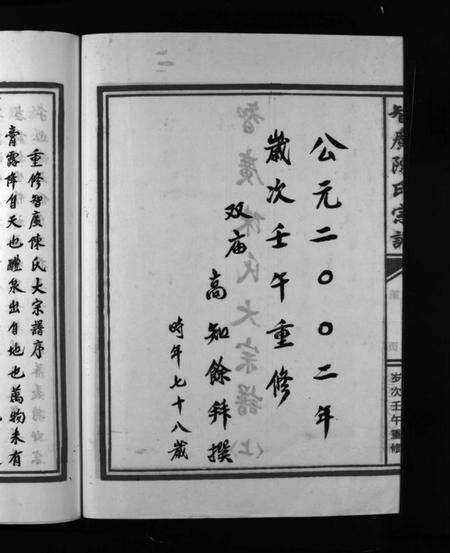 智廣陳氏宗譜
歲次壬午重修
公元二〇〇二年
歲次壬午重修
双庙
高知餘拜撰
時年七十八歲
智廣陳氏大宗譜
重修智廣陳氏大宗譜序
膏露降自天也醴泉出自地也萬物未有